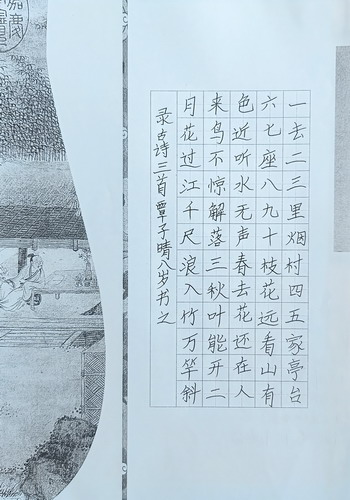 一去二三里烟村四五家亭台
六七座八九十枝花远看山有
色近听水无声春去花还在人
来鸟不惊解落三秋叶能开二
月花过江千尺浪入竹万竿斜
录古诗三首覃子晴八岁书之